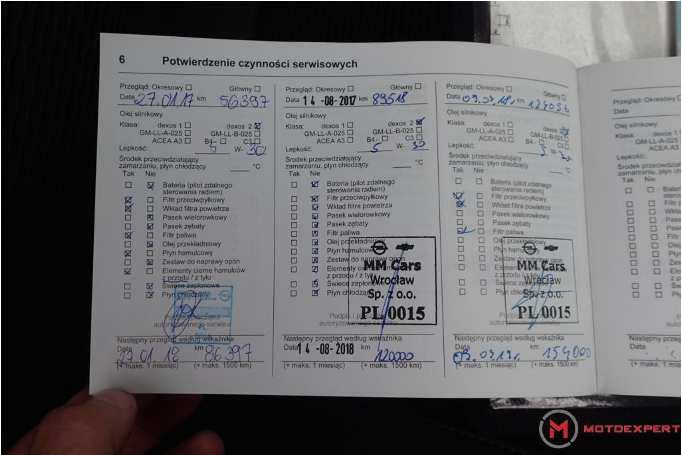 6 Potwierdzenie czynności serwisowych
Przegląd: Okresowy Główny
Data 27.01.17 km 56397
Olej silnikowy
Klasa: dexos 1 dexos 2
GM-LL-A-025 GM-LL-B-025
ACEA A3 B4- C3
Lepkość: 5 W- 30
Środek przeciwdziałający
zamarzaniu, płyn chłodzący °C
Tak Nie
Bateria (pilot zdalnego
sterowania radiem)
Filtr przeciwpyłkowy
Wkład filtra powietrza
Pasek wielorowkowy
Pasek zębaty
Filtr paliwa
Olej przekładniowy
Płyn hamulcowy
Zestaw do naprawy opon
Elementy cierne hamulców
z przodu / z tyłu
Świece zapłonowe
Płyn chłodzący
Następny przegląd według wskaźnika
Data 01.18 km 86397
(+ maks. 1 miesiąc) (+ maks. 1500 km)
Przegląd: Okresowy Główny
Data 14-08-2017 km 89518
Olej silnikowy
Klasa: dexos 1 dexos 2
GM-LL-A-025 GM-LL-B-025
ACEA A3 B4- C3
Lepkość: 5 W- 30
Środek przeciwdziałający
zamarzaniu, płyn chłodzący °C
Tak Nie
Bateria (pilot zdalnego
sterowania radiem)
Filtr przeciwpyłkowy
Wkład filtra powietrza
Pasek wielorowkowy
Pasek zębaty
Filtr paliwa
Olej przekładniowy
Płyn hamulcowy
Zestaw do naprawy opon
Elementy cierne
z przodu / z
Świece zapłonowe
Płyn chłodzący
MM Cars
Wrocław
Sp. z o.o.
PL 0015
Następny przegląd według wskaźnika
Data 14-08-2018 km 120000
(+ maks. 1 miesiąc) (+ maks. 1500 km)
Przegląd: Okresowy Główny
Data km
Olej silnikowy
Klasa: dexos 1 dexos
GM-LL-A-025 GM-LL-B-025
ACEA A3 B4- C3
Lepkość: 5 W-
Środek przeciwdziałający
zamarzaniu, płyn chłodzący °C
Tak Nie
Bateria (pilot zdalnego
sterowania radiem)
Filtr przeciwpyłkowy
Wkład filtra powietrza
Pasek wielorowkowy
Pasek zębaty
Filtr paliwa
Płyn chłodzący
MM Cars
Wrocław
Sp. z o.o.
PL 0015
Następny przegląd według wskaźnika
Data km 154000
(+ maks. 1 miesiąc) (+ maks. 1500 km)
Przegląd: Okresowy
Data
Olej silnikowy
Klasa:
GM-LL-A-025
ACEA A3
Lepkość:
Środek przeciwdziałający
zamarzaniu, płyn chłodzący
Tak Nie
Następny przegląd
Data
(+ maks. 1 miesiąc)
MOTOEXPERT